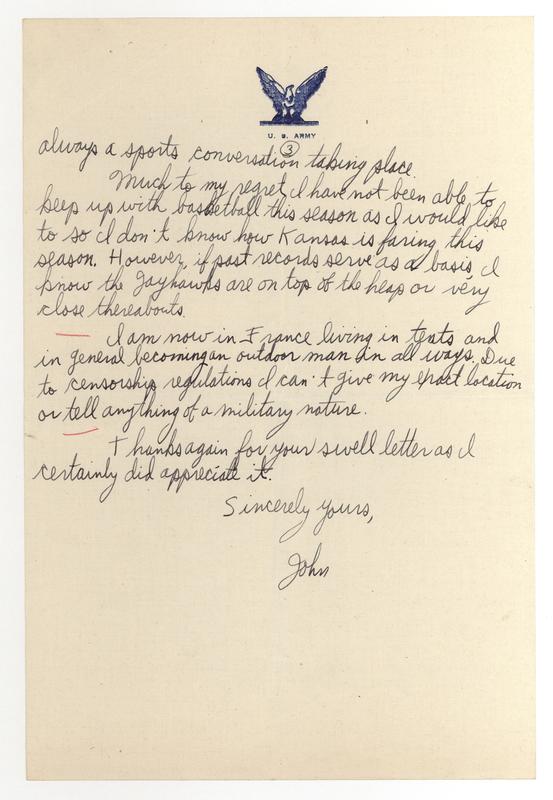 U. S. ARMY
3
always a sports conversation taking place.
Much to my regret, I have not been able to
keep up with basketball this season as I would like
to so I don't know how Kansas is faring this
season. However, if past records serve as a basis, I
know the Jayhawks are on top of the heap or very
close thereabouts.
I am now in France living in tents and
in general becoming an outdoor man in all ways. Due
to censorship regulations I can't give my exact location
or tell anything of a military nature.
Thanks again for your swell letter as I
certainly did appreciate it.
Sincerely yours,
John